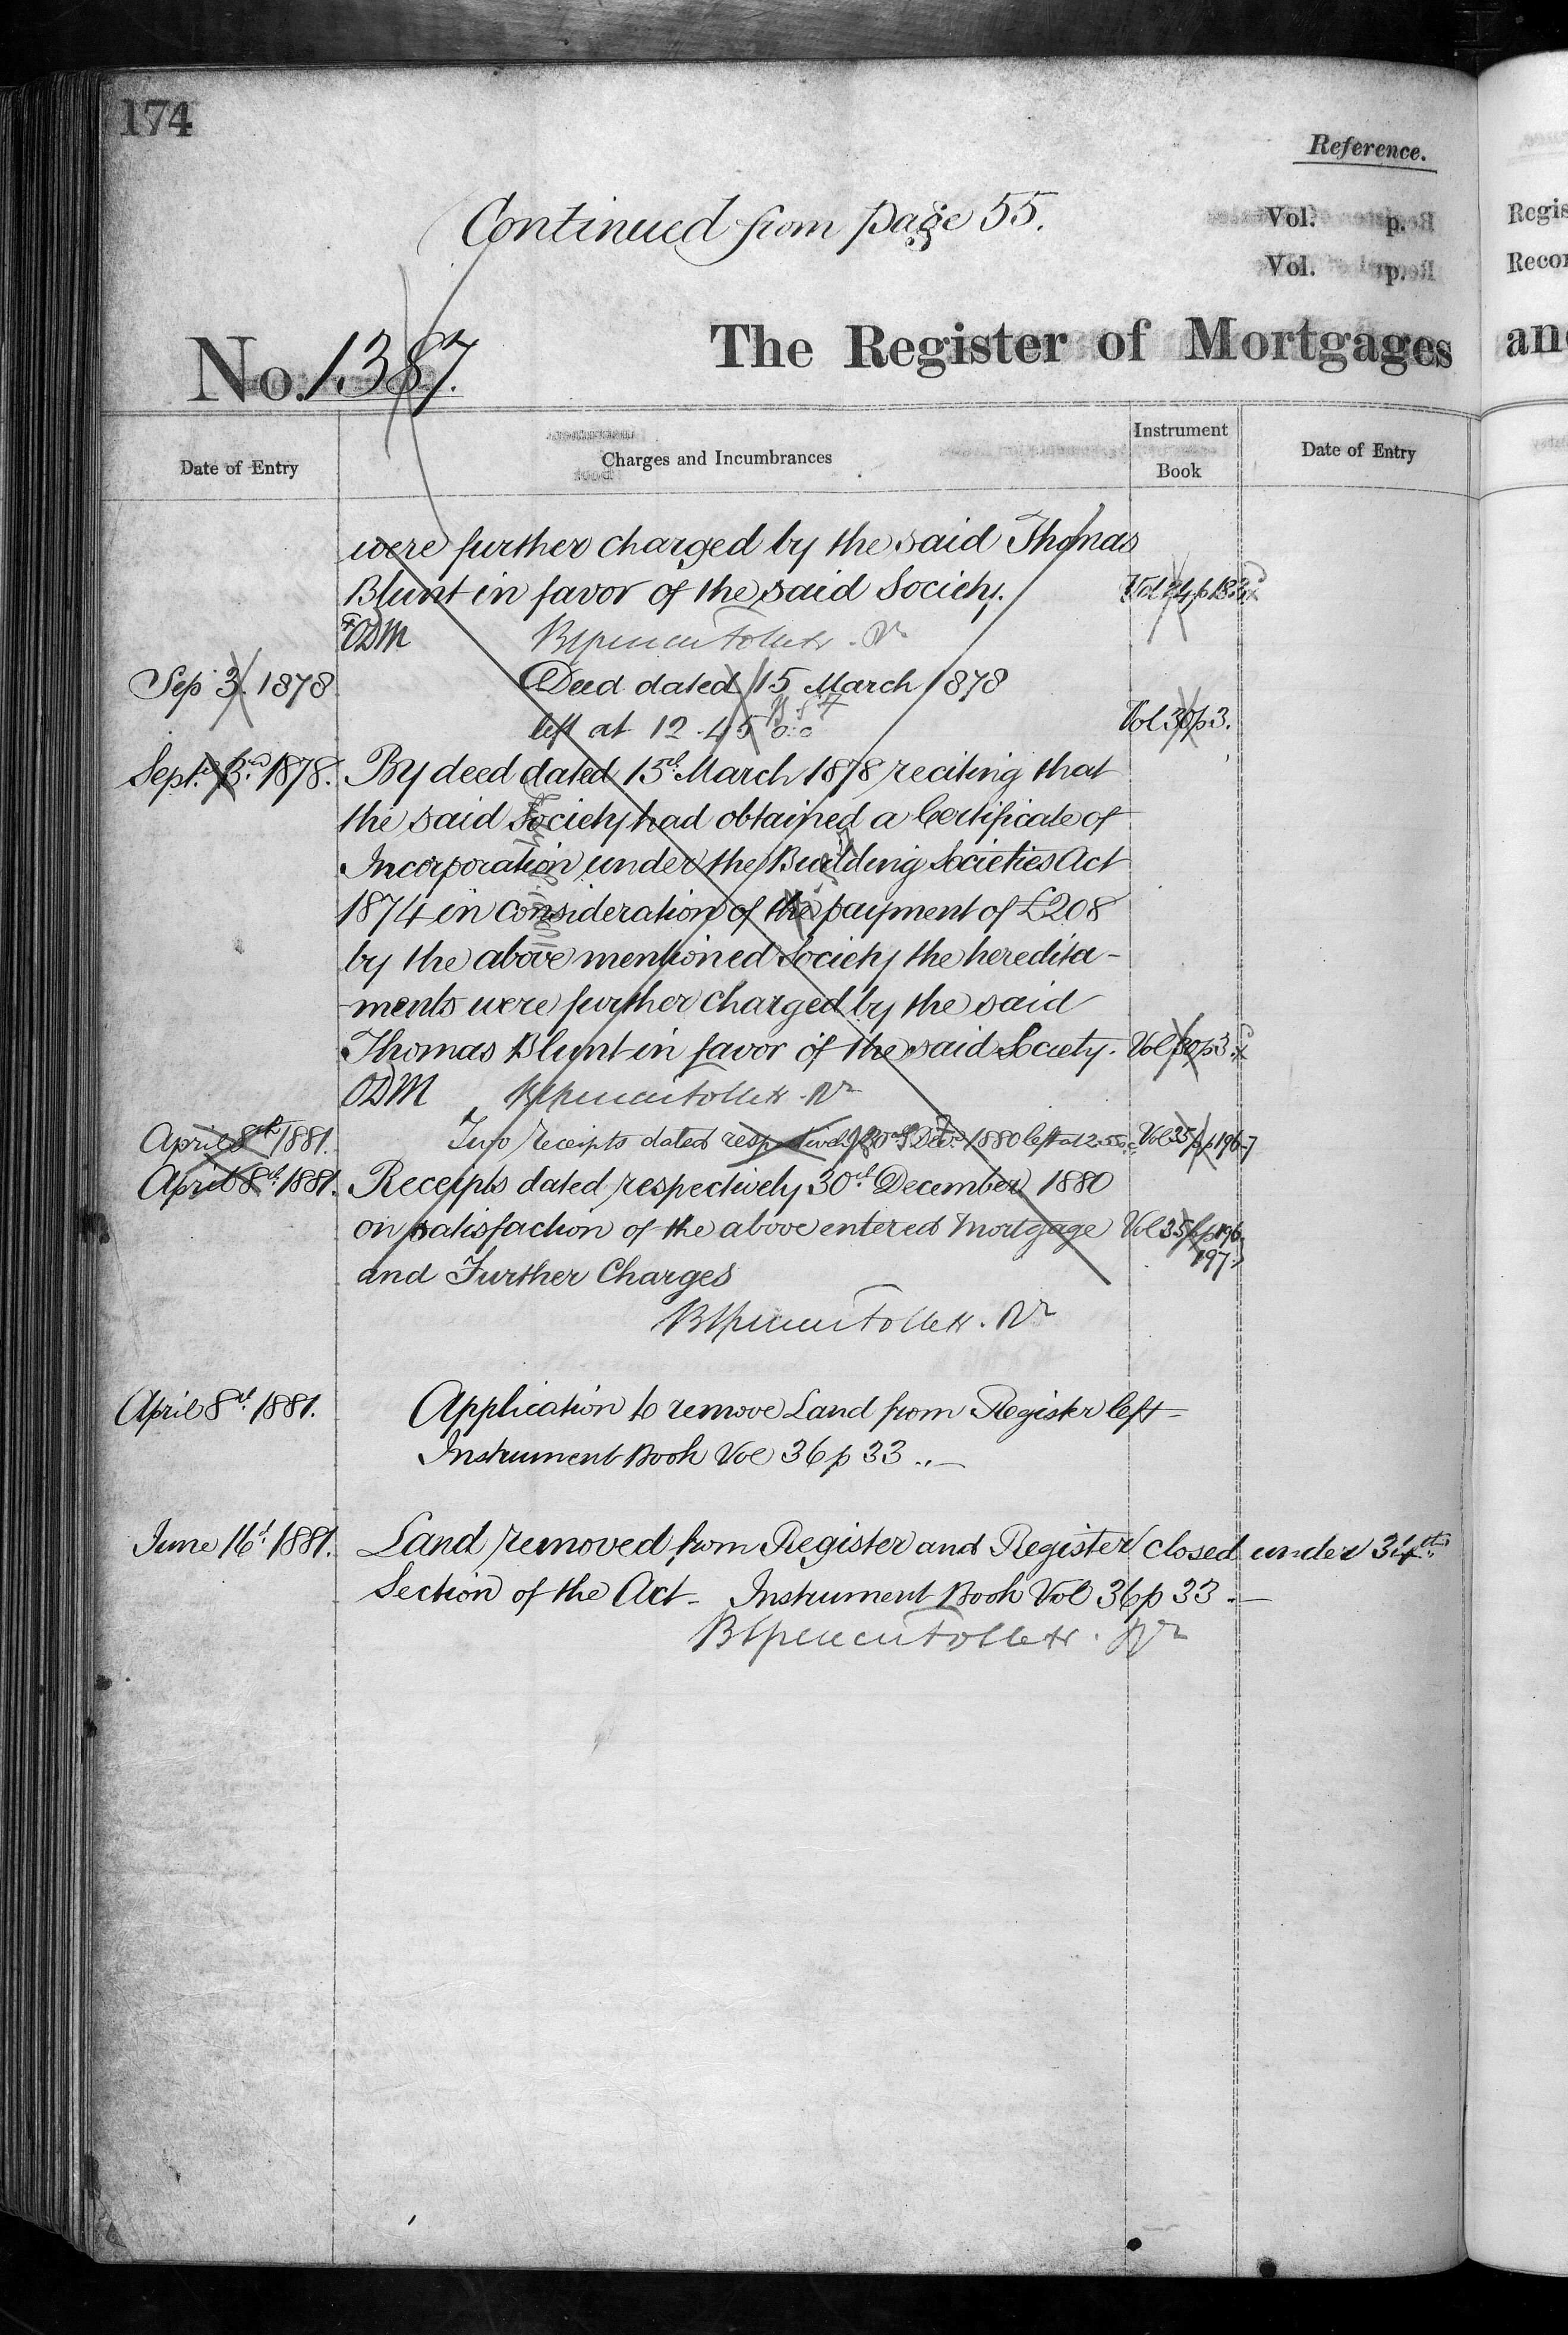 174
Reference.
Continued from page 55.
Vol. p.
Vol. p.
Regis
Recor
No. 1387.
The Register of Mortgages
an
Date of Entry
Charges and Incumbrances
Instrument
Book
Date of Entry
were further charged by the said Thomas
Blunt in favor of the said Society. Vol 24 p
ODM
Sep 3. 1878 Deed dated 15 March 1878
left at 12.45 Vol 30 p 3.
Sept. 3rd 1878. By deed dated 15th March 1878 reciting that
the said Society had obtained a Certificate of
Incorporation under the Building Societies Act
1874 in consideration of the payment of £208
by the above mentioned Society the heredita-
-ments were further charged by the said
Thomas Blunt in favor of the said Society. Vol 30 p 3
ODM
April 8th 1881. Two receipts dated respectively 30th Decr. 1880 left at 12.55 Vol 35 pp 196-7
April 8th 1881. Receipts dated respectively 30th December 1880
on satisfaction of the above entered Mortgage Vol 35 pp 196,
and Further Charges 197
April 8th 1881. Application to remove Land from Register left
Instrument Book Vol 36 p 33
June 16th 1881. Land removed from Register and Register closed under 34th
Section of the Act - Instrument Book Vol 36 p 33